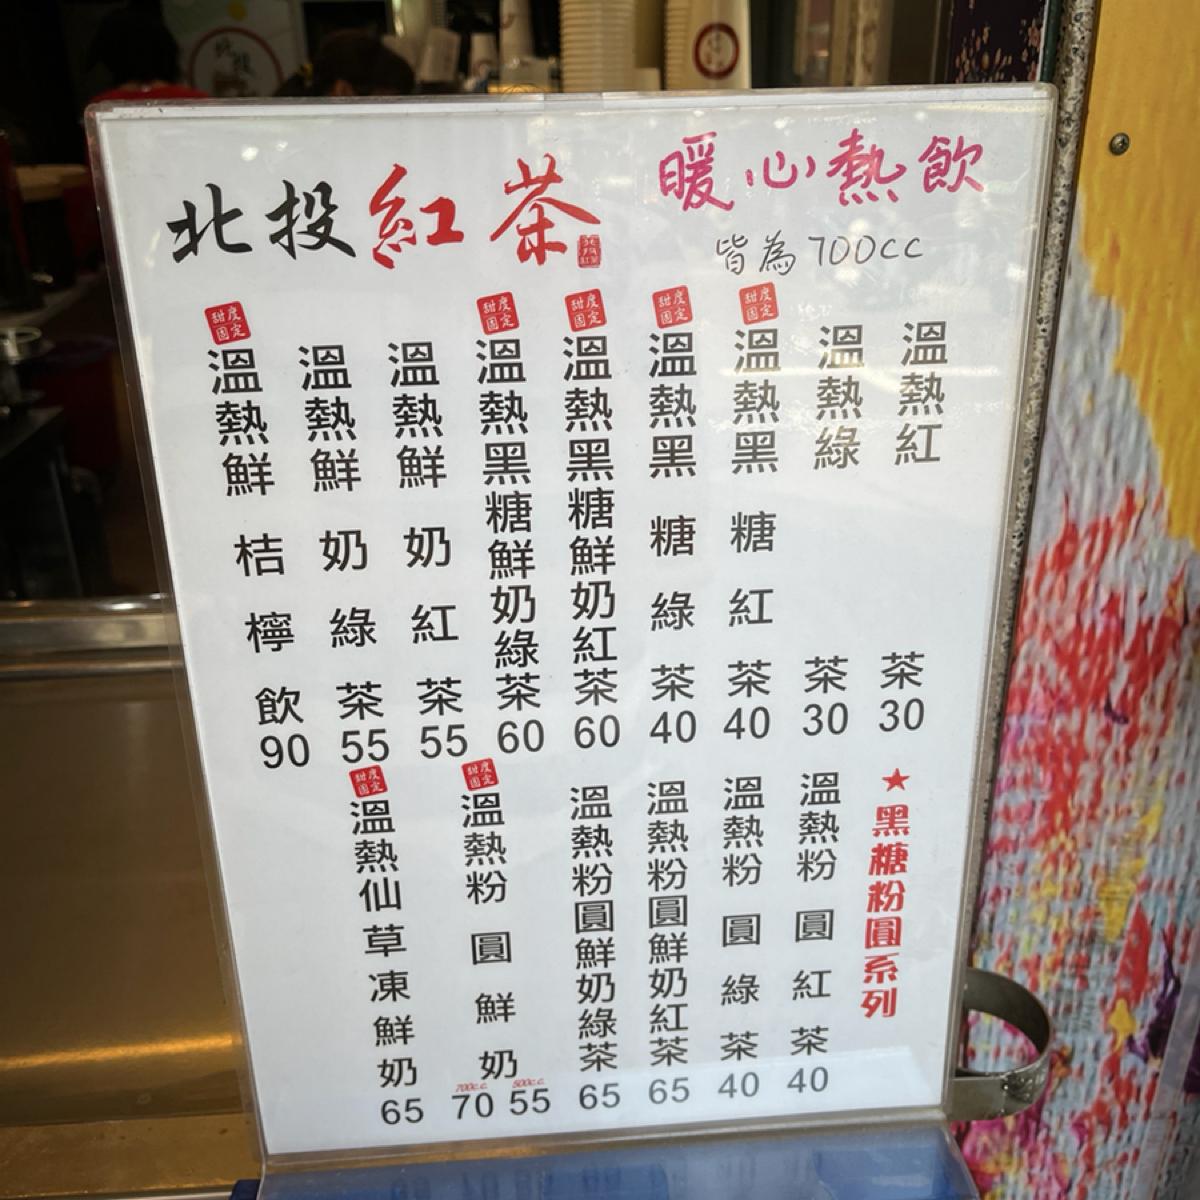 北投紅茶
北投紅茶
暖心熱飲
皆為700cc
溫熱紅茶30
溫熱綠茶30
甜度固定
溫熱黑糖紅茶40
甜度固定
溫熱黑糖綠茶40
甜度固定
溫熱黑糖鮮奶紅茶60
甜度固定
溫熱黑糖鮮奶綠茶60
溫熱鮮奶紅茶55
溫熱鮮奶綠茶55
甜度固定
溫熱鮮桔檸飲90
★黑糖粉圓系列
溫熱粉圓紅茶40
溫熱粉圓綠茶40
溫熱粉圓鮮奶紅茶65
溫熱粉圓鮮奶綠茶65
甜度固定
溫熱粉圓鮮奶
700c.c. 500c.c.
70 55
甜度固定
溫熱仙草凍鮮奶65